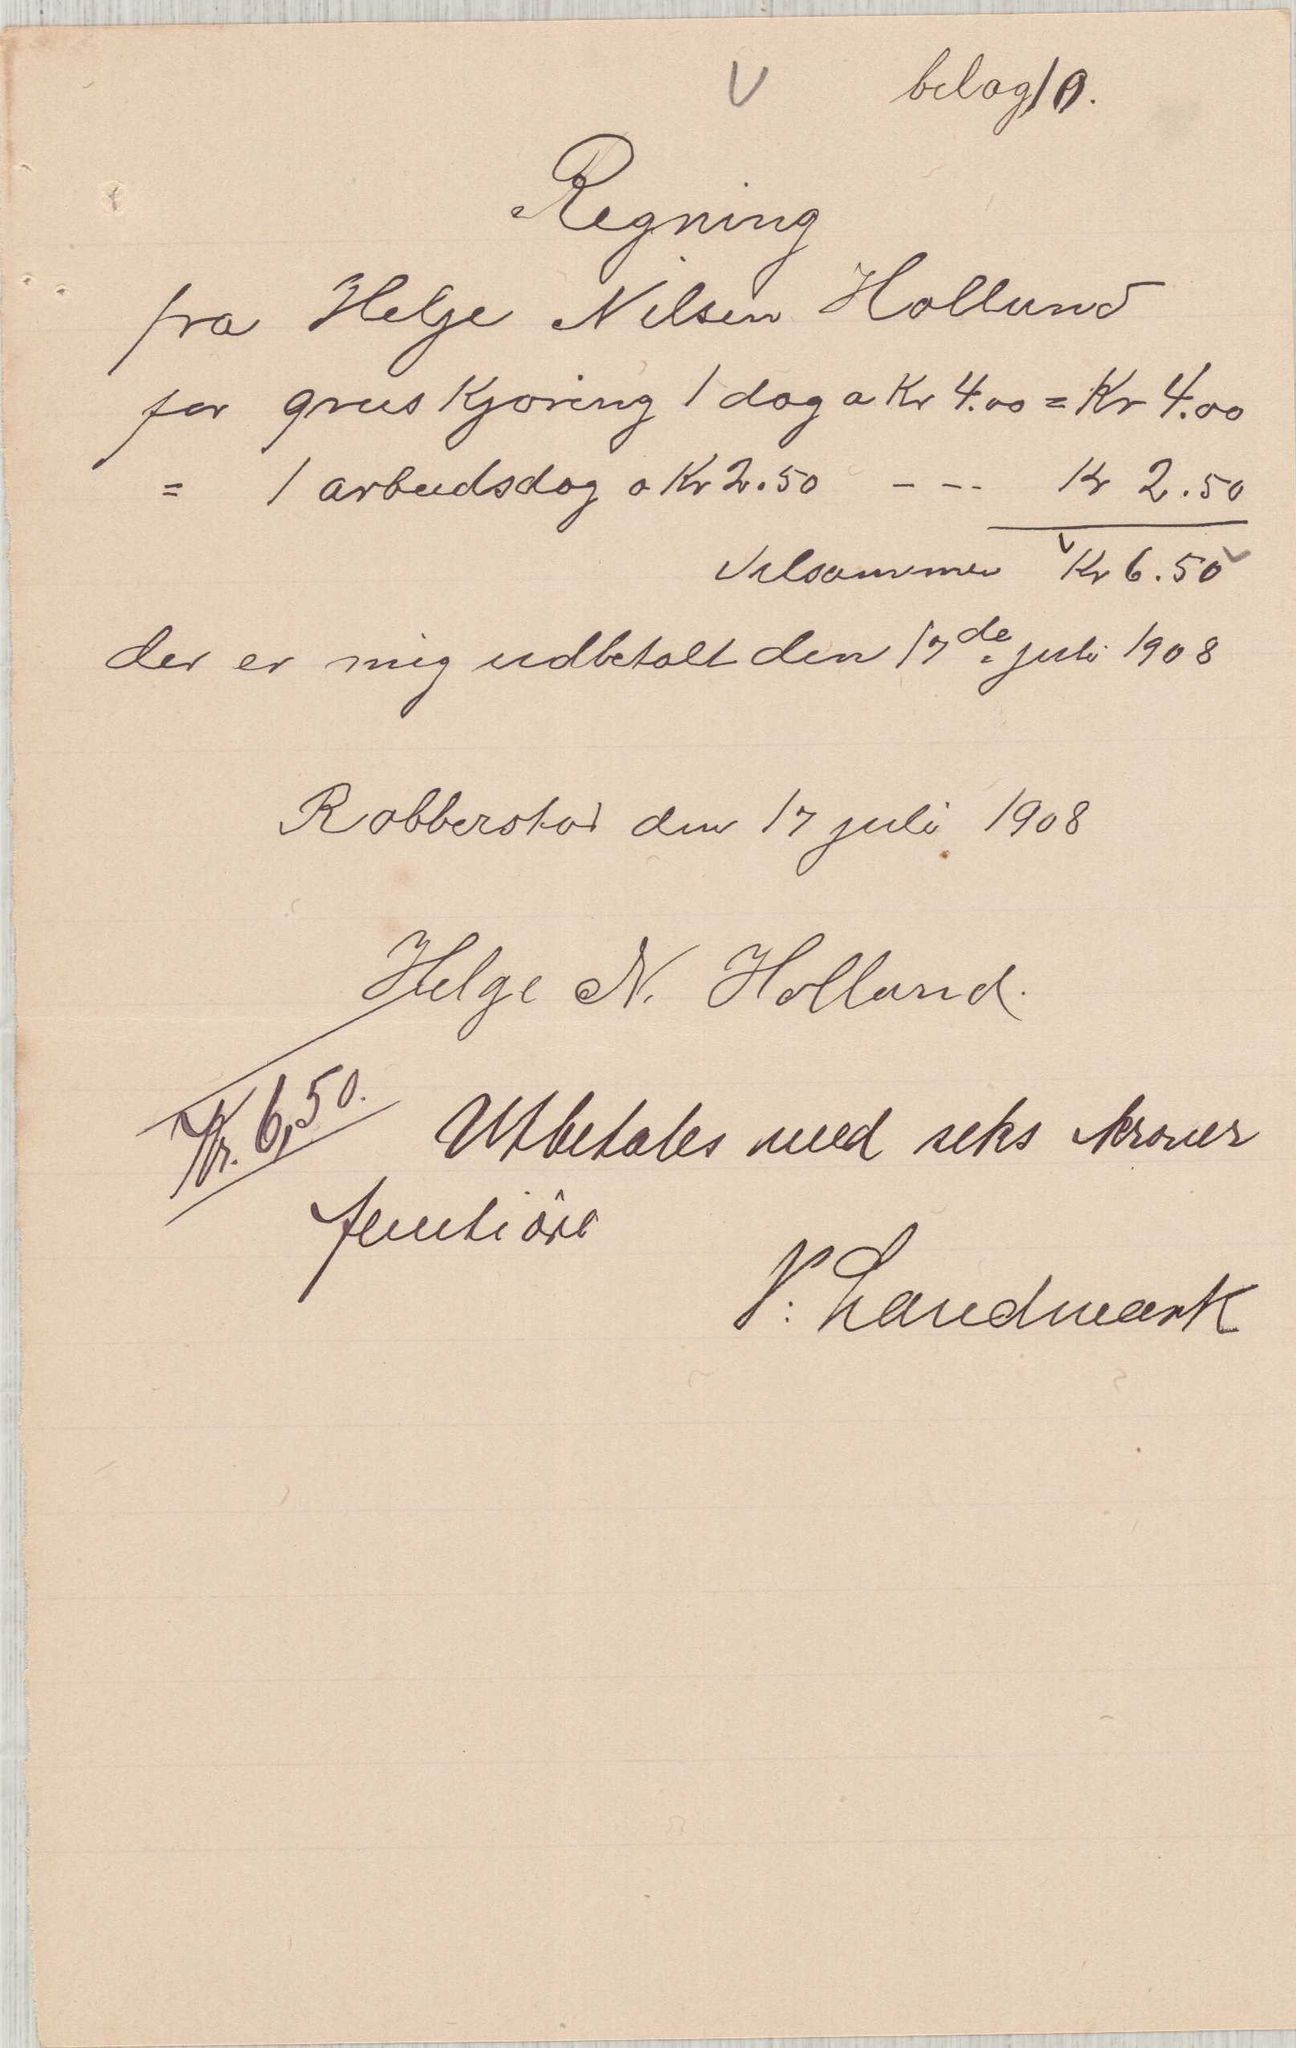 V belag 10.
Regning
fra Helje Nilsen Hollund
for gruskjøring 1 dag a Kr 4.00 = Kr 4.00
= 1 arbeidsdag a Kr 2.50 - - - Kr 2.50
tilsammen Kr 6.50
der er mig udbetalt den 17de juli 1908
Robberstad den 17 juli 1908
Helge N. Hollund.
Kr. 6,50. Utbetales med seks kroner
femti öre
N: Landmark